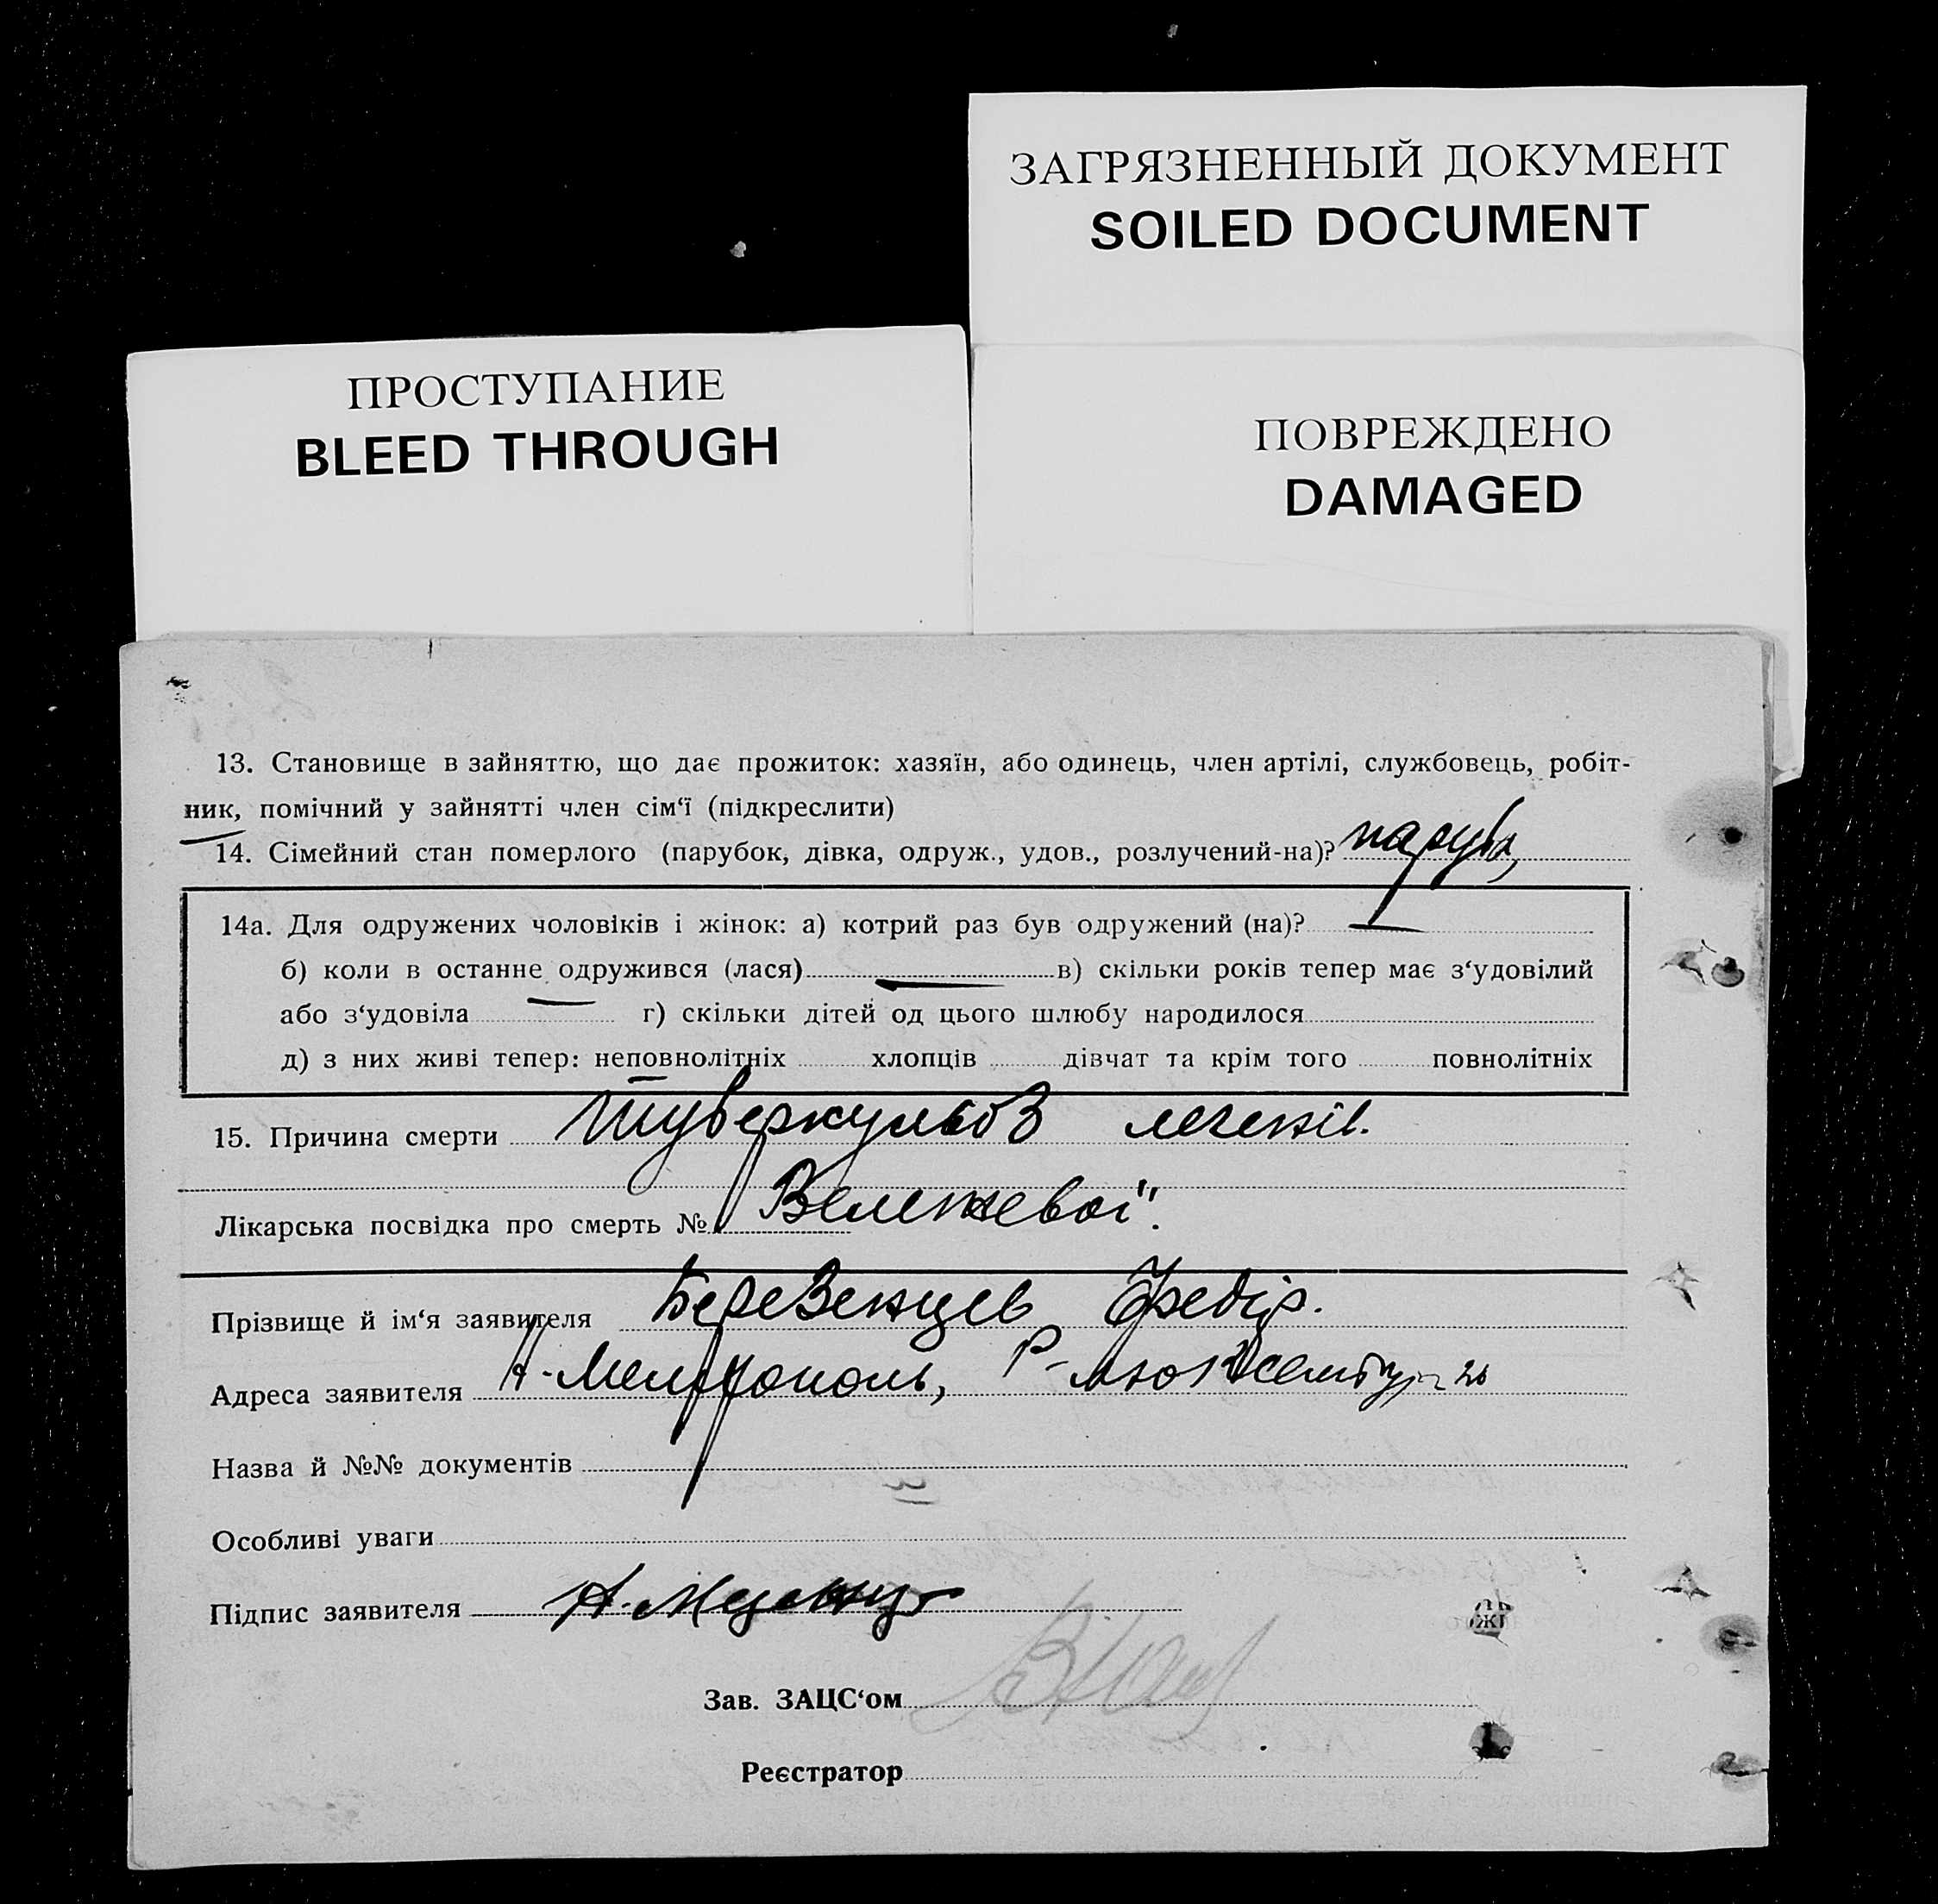 ЗАГРЯЗНЕННЫЙ ДОКУМЕНТ
SOILED DOCUMENT
ПРОСТУПАНИЕ
BLEED THROUGH
ПОВРЕЖДЕНО
DAMAGED
13. Становище в зайняттю, що дає прожиток: хазяїн, або одинець, член артілі, службовець, робіт-
ник, помічний у зайнятті член сім‘ї (підкреслити)
14. Сімейний стан померлого (парубок, дівка, одруж., удов., розлучений-на)? паруб,
14а. Для одружених чоловіків і жінок: а) котрий раз був одружений (на)?
б) коли в останне одружився (лася) в) скільки років тепер має з‘удовілий
або з‘удовіла г) скільки дітей од цього шлюбу народилося
д) з них живі тепер: неповнолітніх хлопців дівчат та крім того повнолітніх
15. Причина смерти туберкульоз легенів.
Лікарська посвідка про смерть №
Прізвище й ім‘я заявителя Березенцев Федір.
Адреса заявителя Мелітополь, 26
Назва й №№ документів
Особливі уваги
Підпис заявителя
Зав. ЗАЦС‘ом
Реєстратор